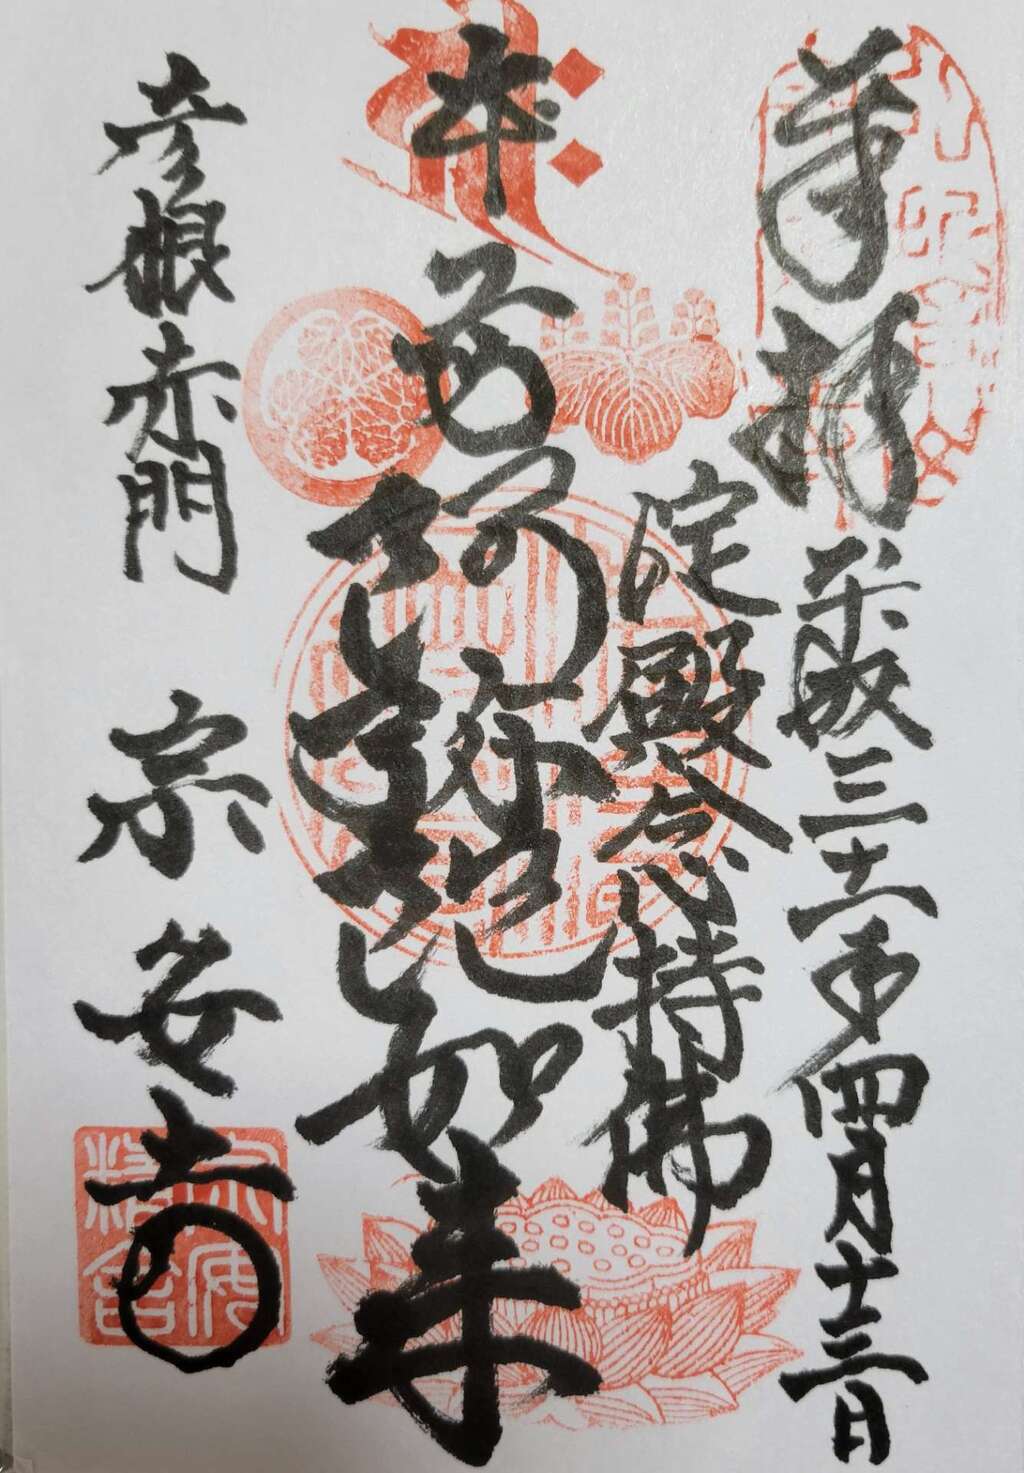 奉拝 平成三十一年四月十三日
淀殿念持佛
本尊 阿彌陀如来
彦根赤門 宗安寺